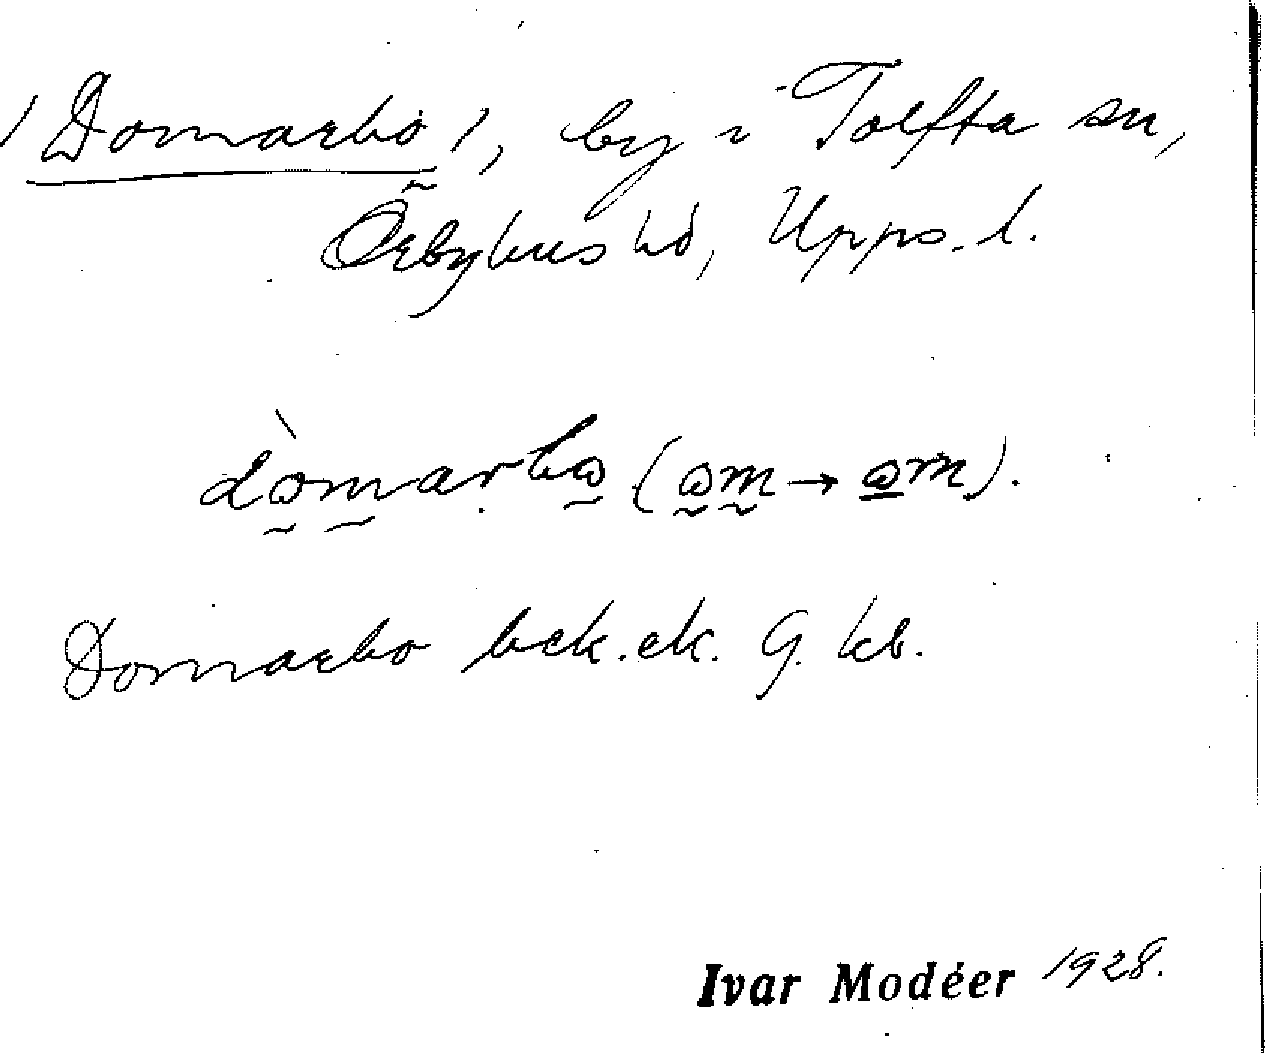 /Domarbo/, by i Tolfta sn,
Örbyhus hd, Upps. l.
dòmarbω (ωm → ωm).
Domarbo bek.ek. G. kb.
Ivar Modéer 1928.